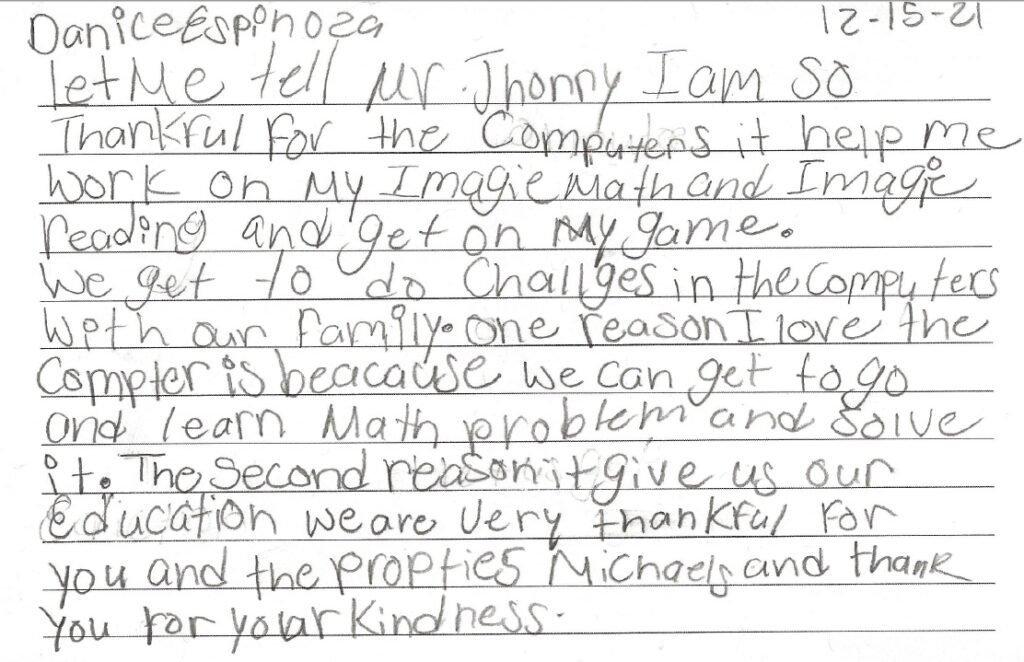 Danice Espinoza 12-15-21
Let Me tell Mr. Jhonny I am so
Thankful For the Computers it help me
work on My Imagie Math and Imagie
reading and get on My game.
We get to do Challges in the Computers
with our Family. one reason I love the
Compter is beacause we can get to go
and learn Math problem and solve
it. The Second reason it give us our
education we are very thankful For
you and the propties Michaels and thank
you for your Kindness.